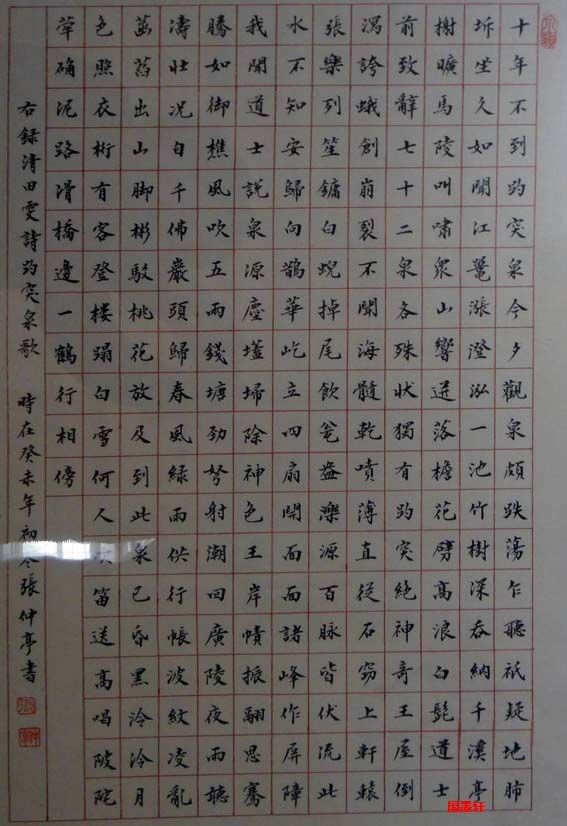 十年不到趵突泉今夕觀泉頗跌蕩乍聽祇疑地肺
坼坐久如聞江鼉漲澄泓一池竹樹深吞納千溪亭
榭曠馬陵叫嘯眾山響迸落檐花劈高浪白髭道士
前致辭七十二泉各殊狀獨有趵突絕神奇王屋倒
瀉誇蛾創崩裂不聞海髓乾噴薄直從石竅上軒轅
張樂列笙鏞白蜺掉尾飲瓮盎濼源百脉皆伏流此
水不知安歸向鵲華屹立四扇開面面諸峰作屏障
我聞道士說泉源塵壒埽除神色王岸幘振翮思騫
騰如御樵風吹五雨錢塘勁弩射潮回廣陵夜雨聽
濤壯況自千佛巖頭歸春風綠雨供行帳波紋凌亂
菡萏出山脚彬駁桃花放及到此泉已昏黑泠泠月
色照衣桁有客登楼蹋白雪何人吹笛送高唱陂陀
犖确泥路滑橋邊一鶴行相傍
右録清田雯詩趵突泉歌 時在癸未年初冬張仲亭書
国墨轩